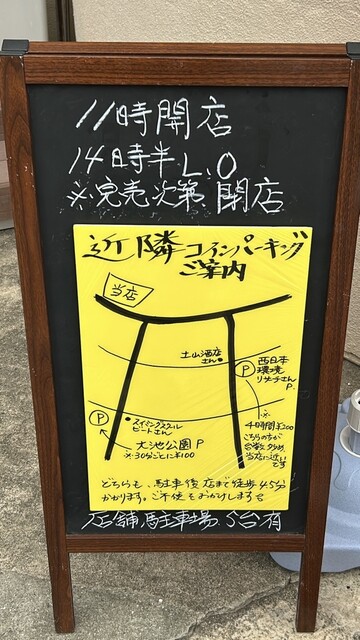 11時開店
14時半L.O
※完売次第閉店
近隣コインパーキング
ご案内
当店
土山酒店
さん
西日本
環境
リサーチさん
P.
P
※
4時間¥200
こちらの方が
台数多め、
当店に近い
です
P
スイミングスクール
ビートさん
大池公園P
※30分ごとに¥100
どちらも、駐車後店まで徒歩4.5分
かかります。ご不便をおかけします
店舗駐車場5台有